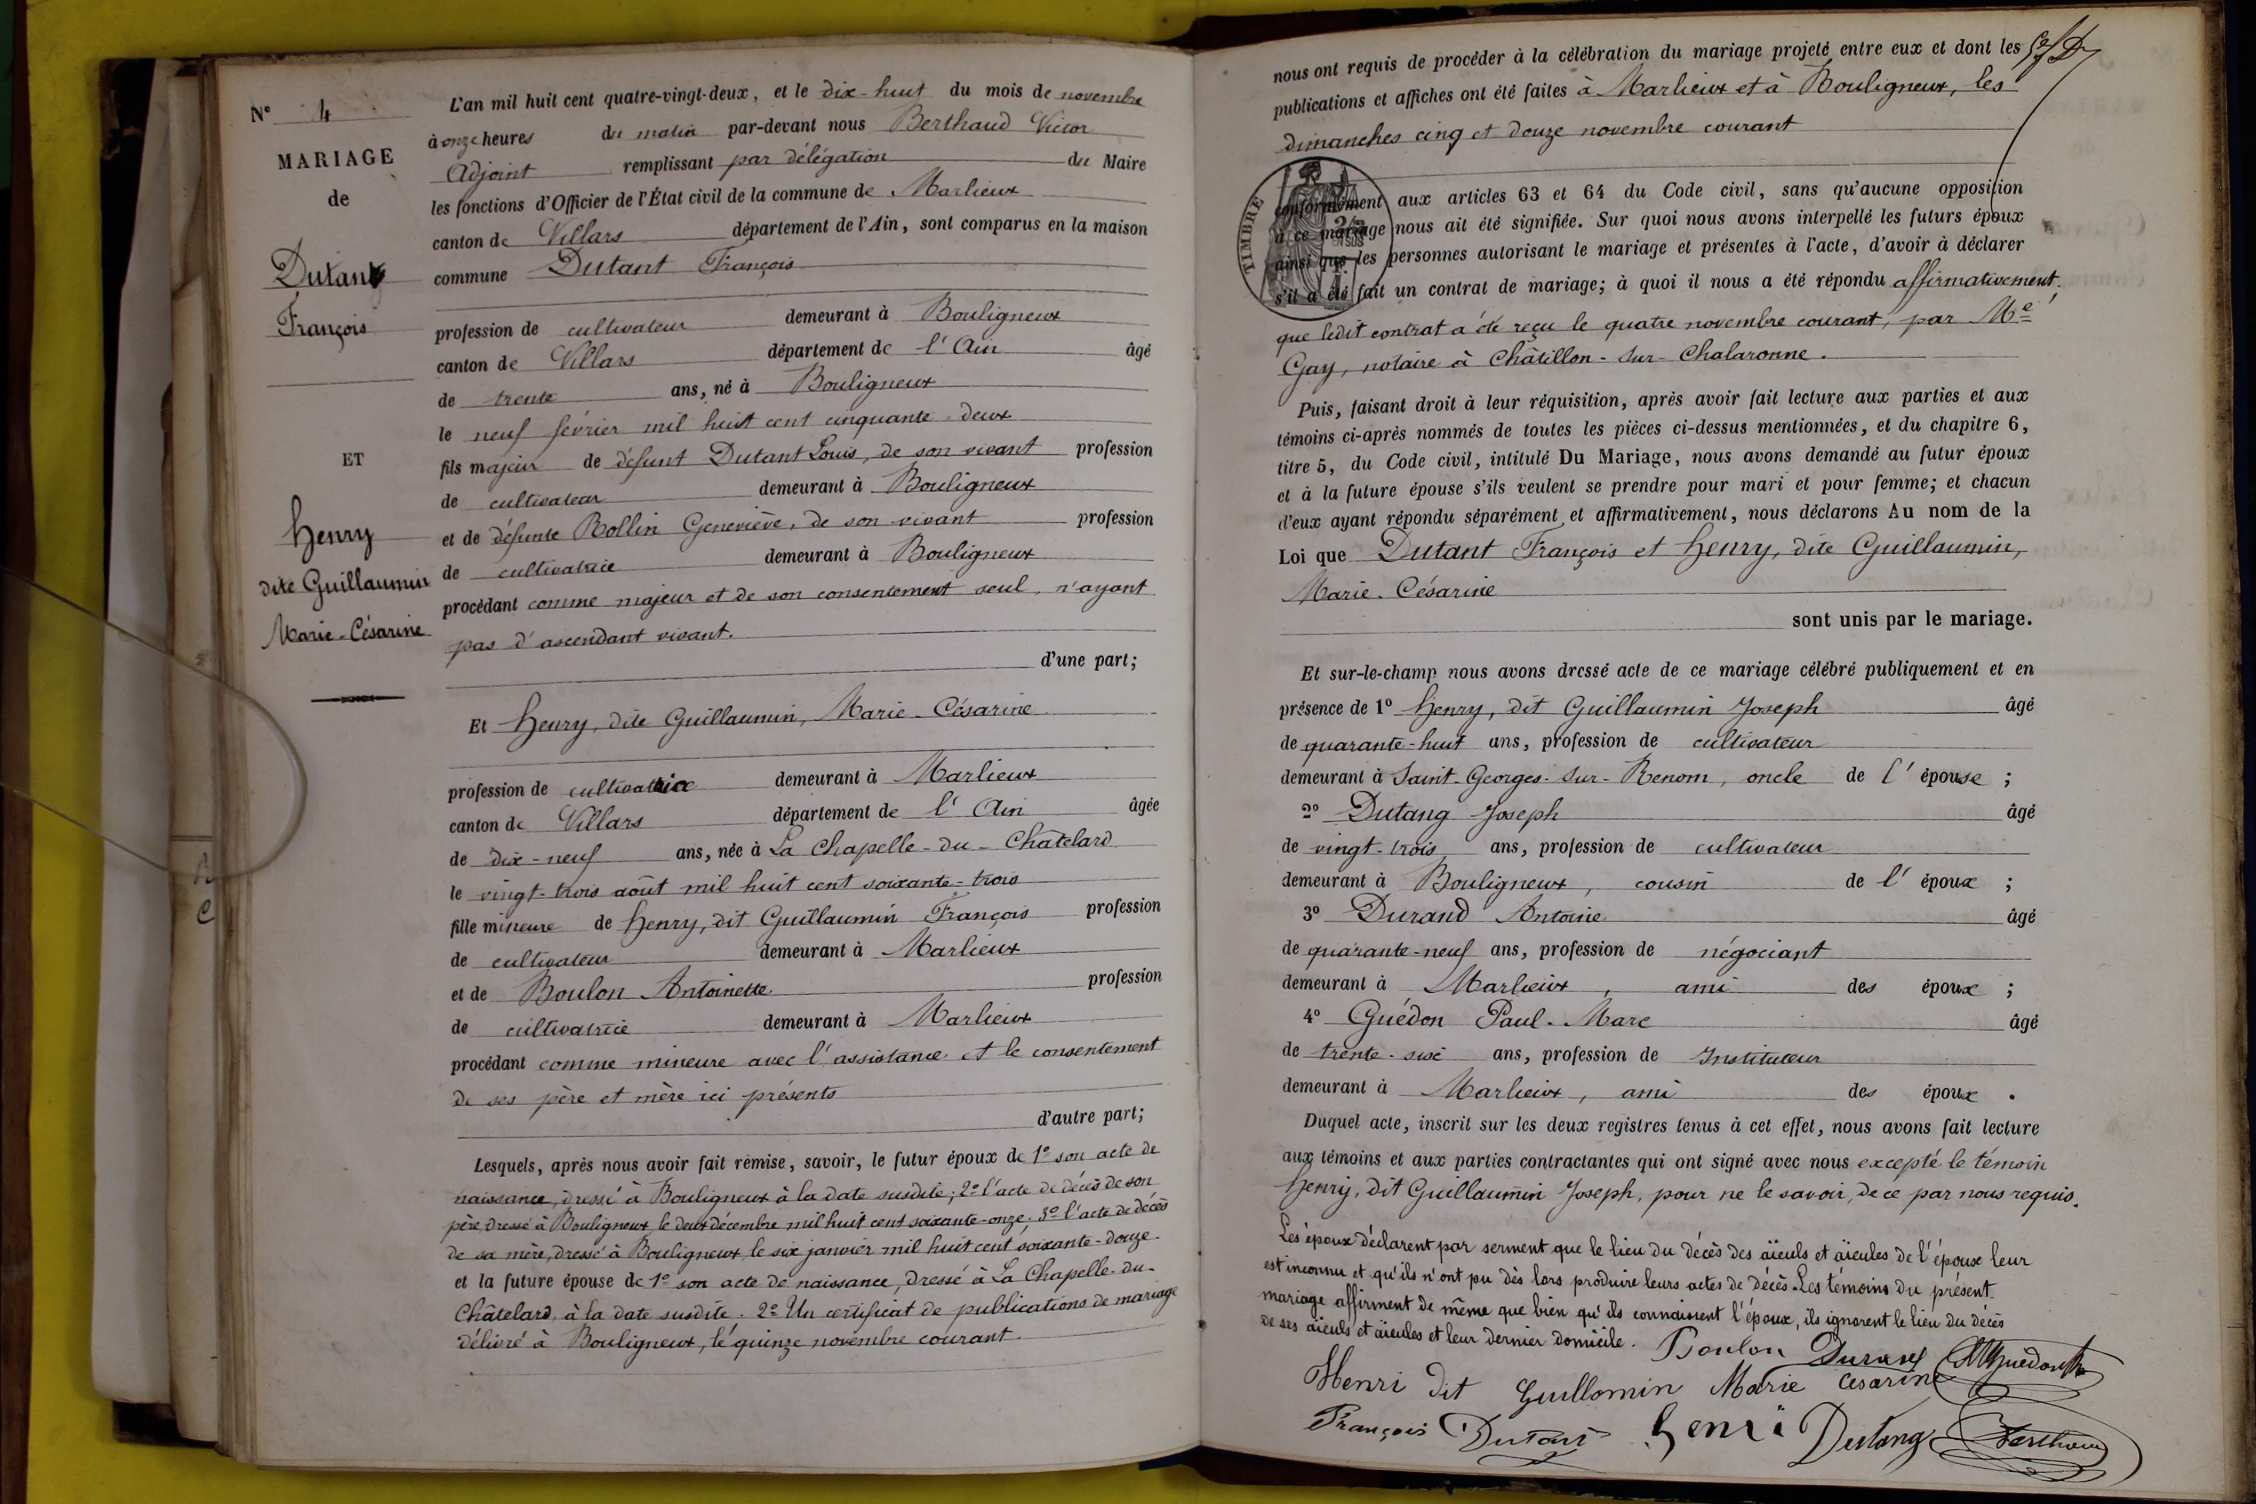 N° 4
MARIAGE
de
Dutant
François
ET
Henry
dite Guillaumin
Marie-Césarine
L'an mil huit cent quatre-vingt-deux, et le dix-huit du mois de novembre
à onze heures du matin par-devant nous Berthaud Victor
Adjoint remplissant par délégation du Maire
les fonctions d'Officier de l'État civil de la commune de Marlieux
canton de Villars département de l'Ain, sont comparus en la maison
commune Dutant François
profession de cultivateur demeurant à Bouligneux
canton de Villars département de l'Ain âgé
de trente ans, né à Bouligneux
le neuf février mil huit cent cinquante-deux
fils majeur de défunt Dutant Louis, de son vivant profession
de cultivateur demeurant à Bouligneux
et de défunte Rollin Geneviève, de son vivant profession
de cultivatrice demeurant à Bouligneux
procédant comme majeur et de son consentement seul, n'ayant
pas d'ascendant vivant.
d'une part;
Et Henry, dite Guillaumin, Marie-Césarine
profession de cultivatrice demeurant à Marlieux
canton de Villars département de l'Ain âgée
de dix-neuf ans, née à La Chapelle-du-Chatelard
le vingt-trois août mil huit cent soixante-trois
fille mineure de Henry, dit Guillaumin François profession
de cultivateur demeurant à Marlieux
et de Boulon Antoinette profession
de cultivatrice demeurant à Marlieux
procédant comme mineure avec l'assistance et le consentement
de ses père et mère ici présents
d'autre part;
Lesquels, après nous avoir fait remise, savoir, le futur époux de 1° son acte de
naissance, dressé à Bouligneux à la date susdite; 2° l'acte de décès de son
père, dressé à Bouligneux le deux décembre mil huit cent soixante-onze. 3° l'acte de décès
de sa mère, dressé à Bouligneux, le six janvier mil huit cent soixante-douze.
et la future épouse de 1° son acte de naissance, dressé à La Chapelle-du-
Châtelard, à la date susdite. 2° Un certificat de publications de mariage
délivré à Bouligneux, le quinze novembre courant.
nous ont requis de procéder à la célébration du mariage projeté entre eux et dont les
publications et affiches ont été faites à Marlieux et à Bouligneux, les
dimanches cinq et douze novembre courant
TIMBRE
conformément aux articles 63 et 64 du Code civil, sans qu'aucune opposition
à ce mariage nous ait été signifiée. Sur quoi nous avons interpellé les futurs époux
ainsi que les personnes autorisant le mariage et présentes à l'acte, d'avoir à déclarer
s'il a été fait un contrat de mariage; à quoi il nous a été répondu affirmativement.
que ledit contrat a été reçu le quatre novembre courant, par Me
Gay, notaire à Châtillon-sur-Chalaronne.
Puis, faisant droit à leur réquisition, après avoir fait lecture aux parties et aux
témoins ci-après nommés de toutes les pièces ci-dessus mentionnées, et du chapitre 6,
titre 5, du Code civil, intitulé Du Mariage, nous avons demandé au futur époux
et à la future épouse s'ils veulent se prendre pour mari et pour femme; et chacun
d'eux ayant répondu séparément et affirmativement, nous déclarons Au nom de la
Loi que Dutant François et Henry, dite Guillaumin,
Marie-Césarine
sont unis par le mariage.
Et sur-le-champ nous avons dressé acte de ce mariage célébré publiquement et en
présence de 1° Henry, dit Guillaumin Joseph âgé
de quarante-huit ans, profession de cultivateur
demeurant à Saint-Georges-sur-Renom, oncle de l'épouse ;
2° Dutang Joseph âgé
de vingt-trois ans, profession de cultivateur
demeurant à Bouligneux, cousin de l'époux ;
3° Durand Antoine âgé
de quarante-neuf ans, profession de négociant
demeurant à Marlieux, ami des époux ;
4° Guédon Paul-Marc âgé
de trente-six ans, profession de Instituteur
demeurant à Marlieux, ami des époux .
Duquel acte, inscrit sur les deux registres tenus à cet effet, nous avons fait lecture
aux témoins et aux parties contractantes qui ont signé avec nous excepté le témoin
Henry, dit Guillaumin Joseph, pour ne le savoir, de ce par nous requis.
Les époux déclarent par serment que le lieu du décès des aïeuls et aïeules de l'époux leur
est inconnu et qu'ils n'ont pu dès lors produire leurs actes de décès. Les témoins du présent
mariage affirment de même que bien qu'ils connaissent l'époux, ils ignorent le lieu du décès
de ses aïeuls et aïeules et leur dernier domicile. Boulon Durand
Henri dit Guillomin Marie Césarine
François Dutant Henri Dutang Berthaud